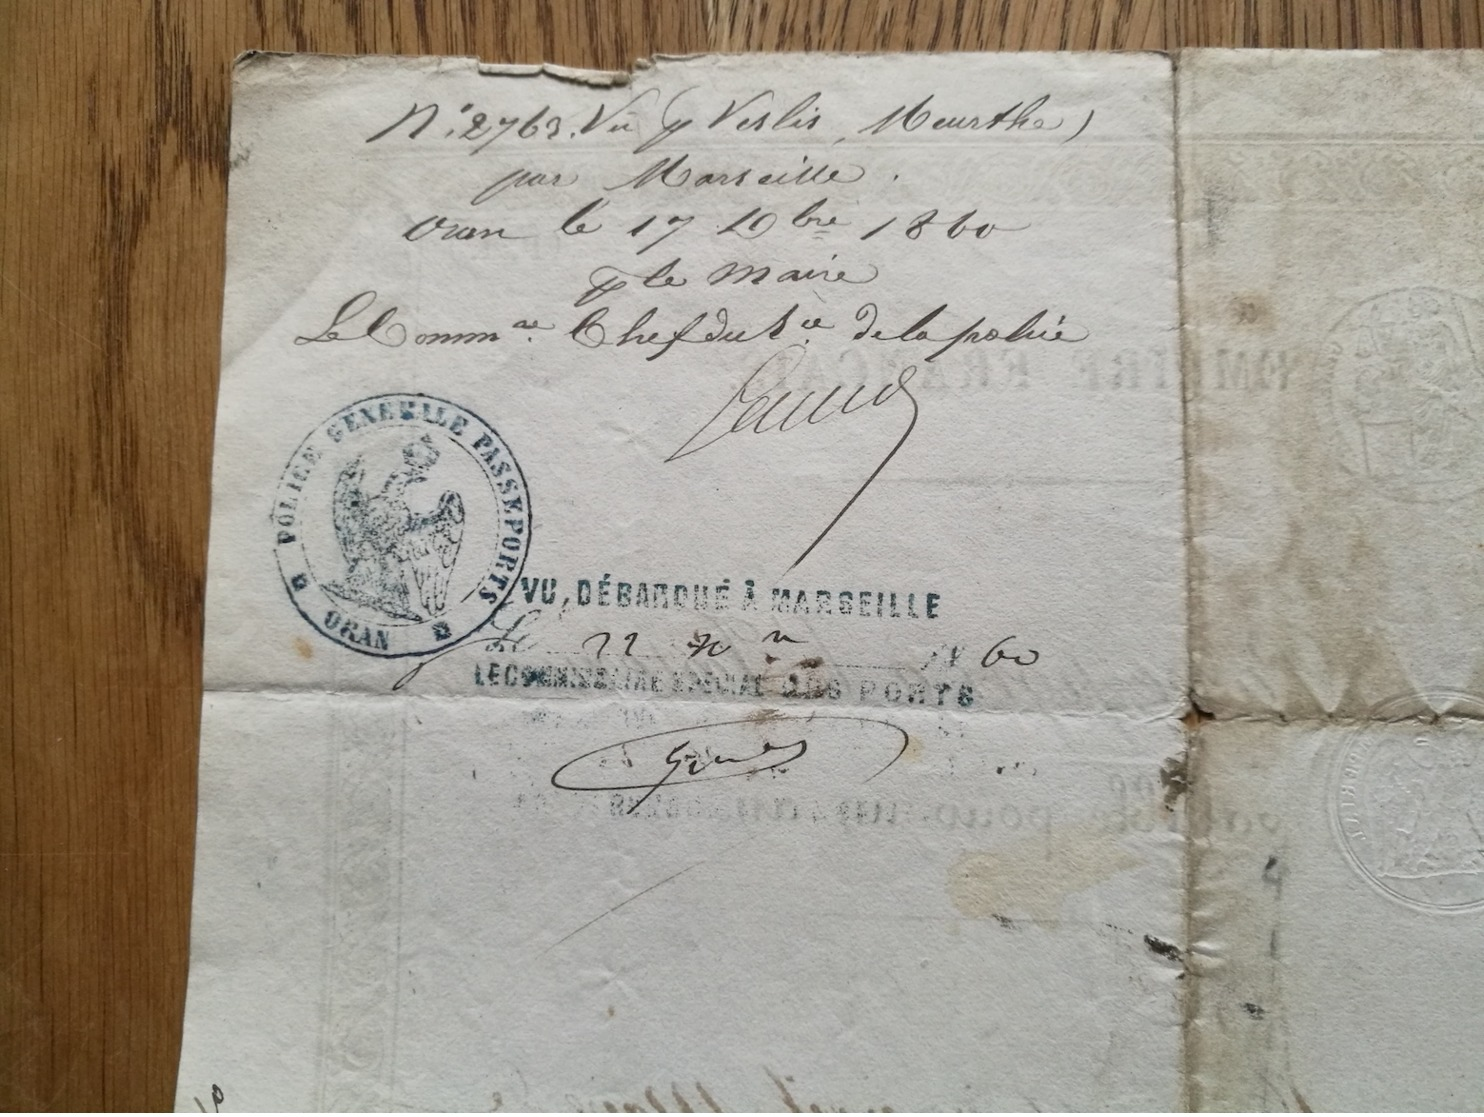 N° 2763. Vu pr Veslis, Meurthe)
par Marseille.
Oran le 17 10bre 1860
pr le Maire
Le Commre Chef du Sce de la police
POLICE GENERALE PASSEPORTS
ORAN
VU, DÉBARQUÉ À MARSEILLE
Le 22 Xre 1860
LE COMMISSAIRE SPECIAL DES PORTS
EMPIRE FRANÇAIS